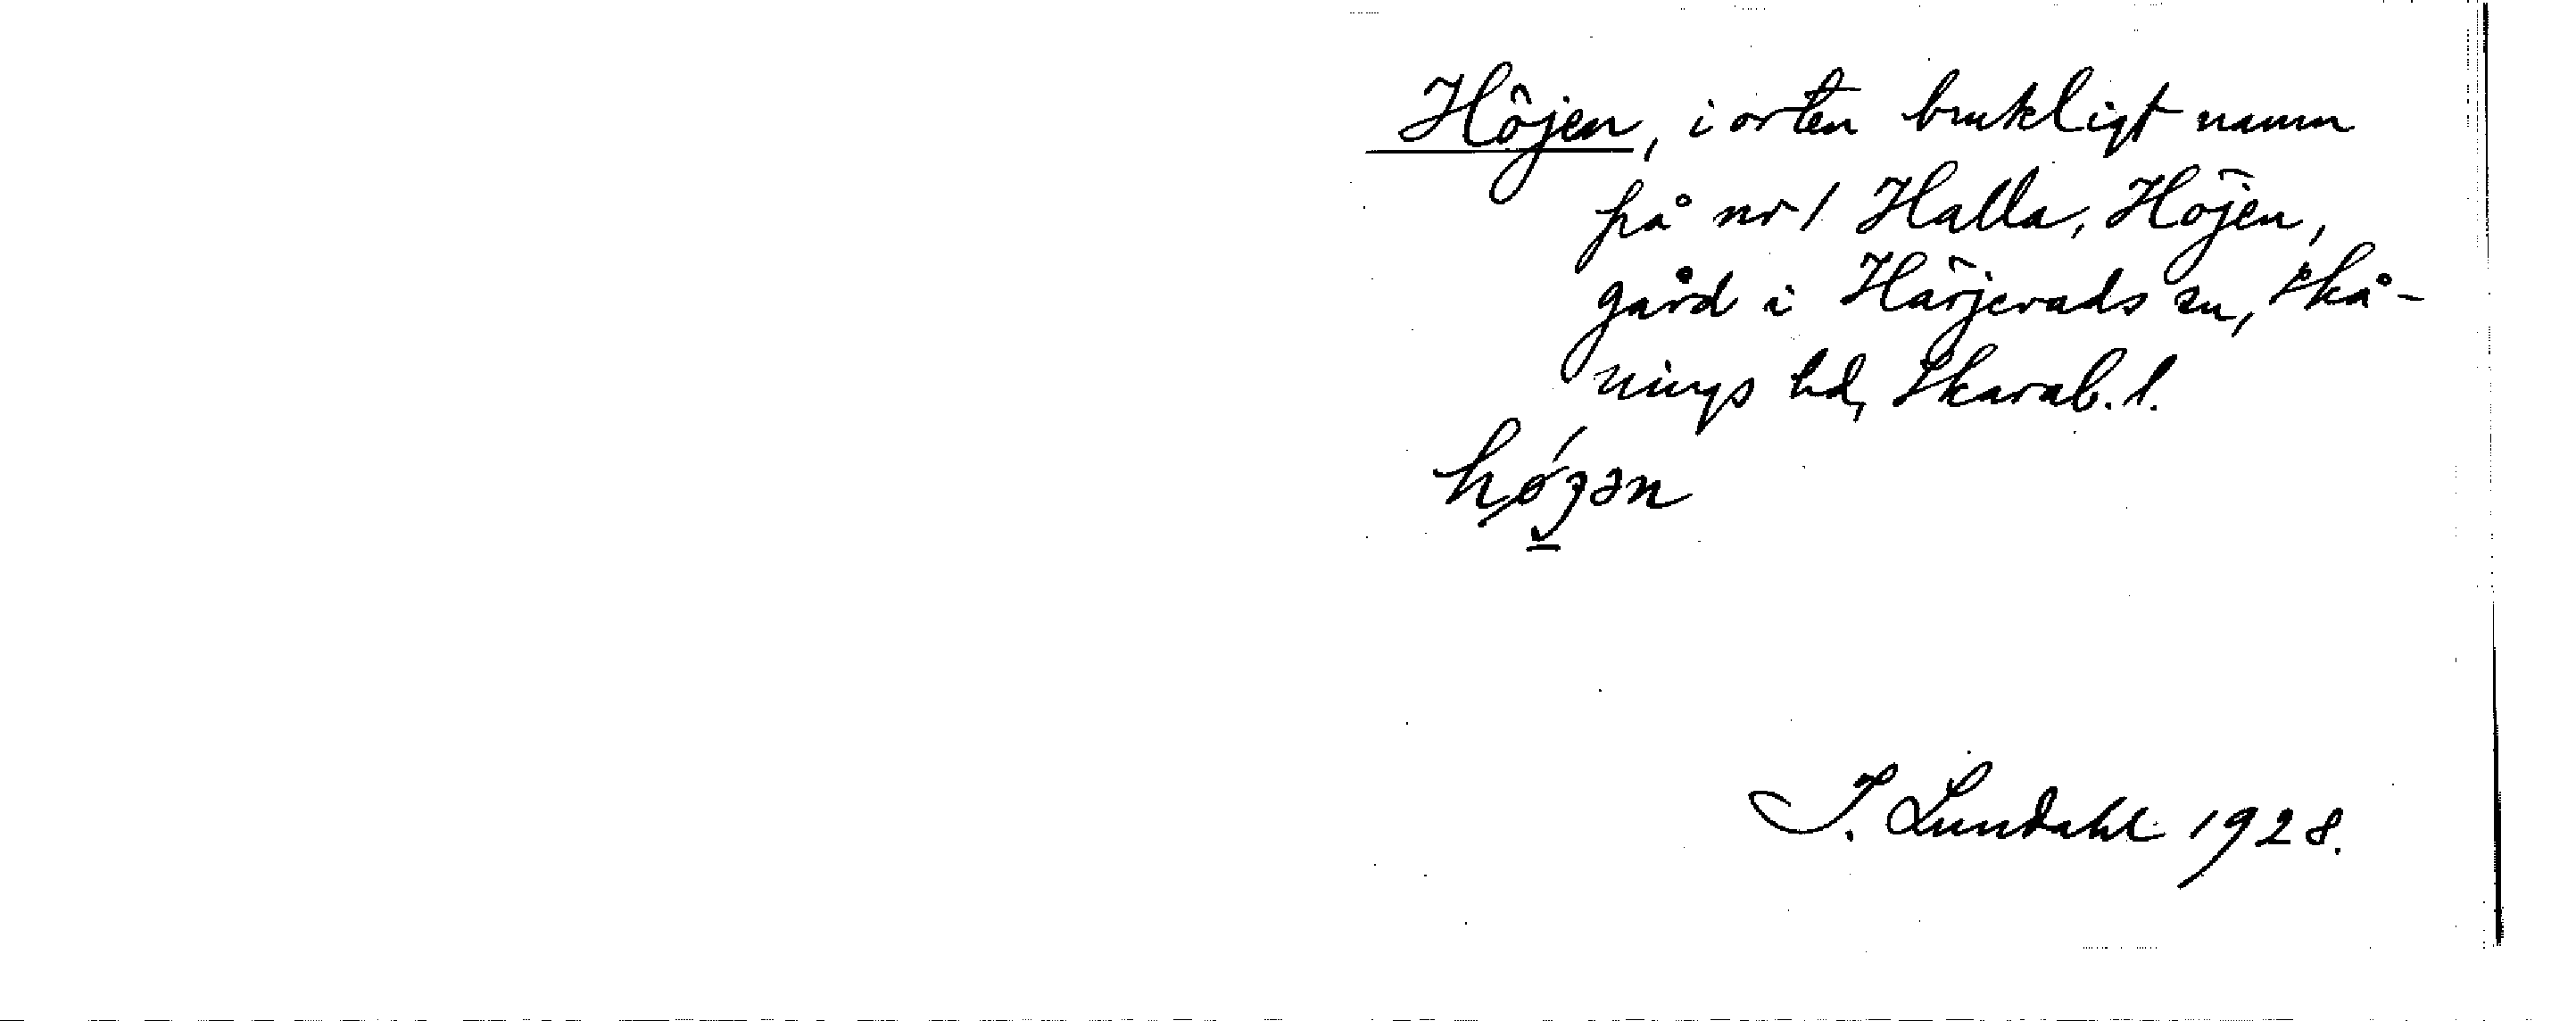 Höjen, i orten brukligt namn
på nr 1 Halla, Höjen,
gård i Härjevads sn, Skå-
nings hd, Skarab. l.
I. Lundahl 1928.